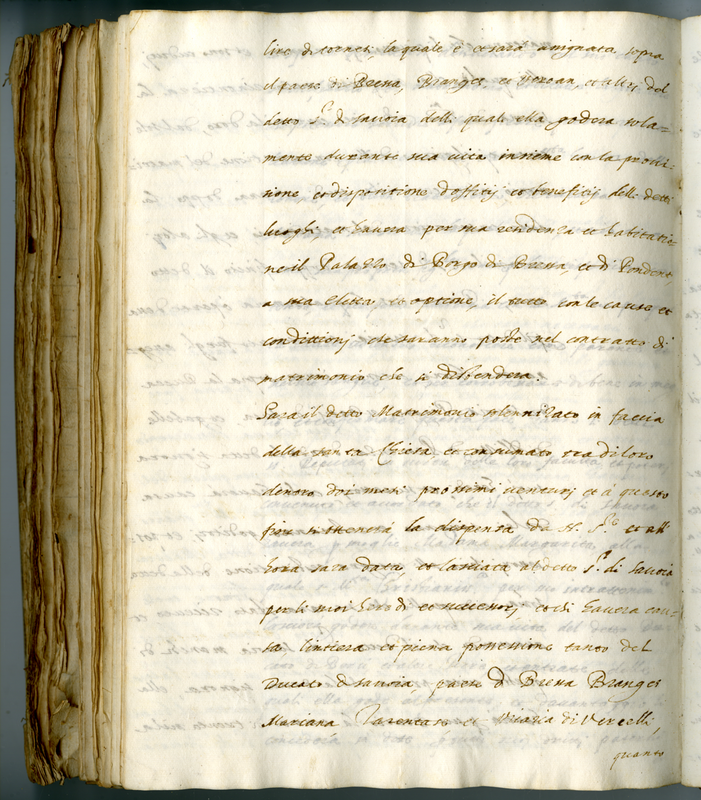 lire di tornesi, la quale è et sarà assignata sopra
il paese di Bressa, Branges, et Verean, et altri del
detto s.r di savoia delli quali ella godera sola=
mente durante sua vita insieme con la provi=
sione et dispositione d'offitij et beneficij delli detti
luoghi, et havera per sua residenza et habitatio
ne il Palazzo di Borgo di Bressa, et di Pondent,
a sua eletta, et optione, il tutto con le cause et
condittionj che saranno poste nel contratto di
matrimonio che si distendera.
Sara il detto Matrimonio solennizato in faccia
della santa Chiesa et consumato tra di loro
dentro doi mesi prossimi venturj et à questo
fine si ottenerà la dispensa da N. S.re et all
hora sara data, et lasciata al detto s.r di Savoia
per li suoi heredi et successorj, et chi havera cau=
sa l'intiera et piena possessione tanto del
Ducato di savoia, paese di Bressa Branges
Mariana Tarentaso et Viaria di Vercelli,
quanto